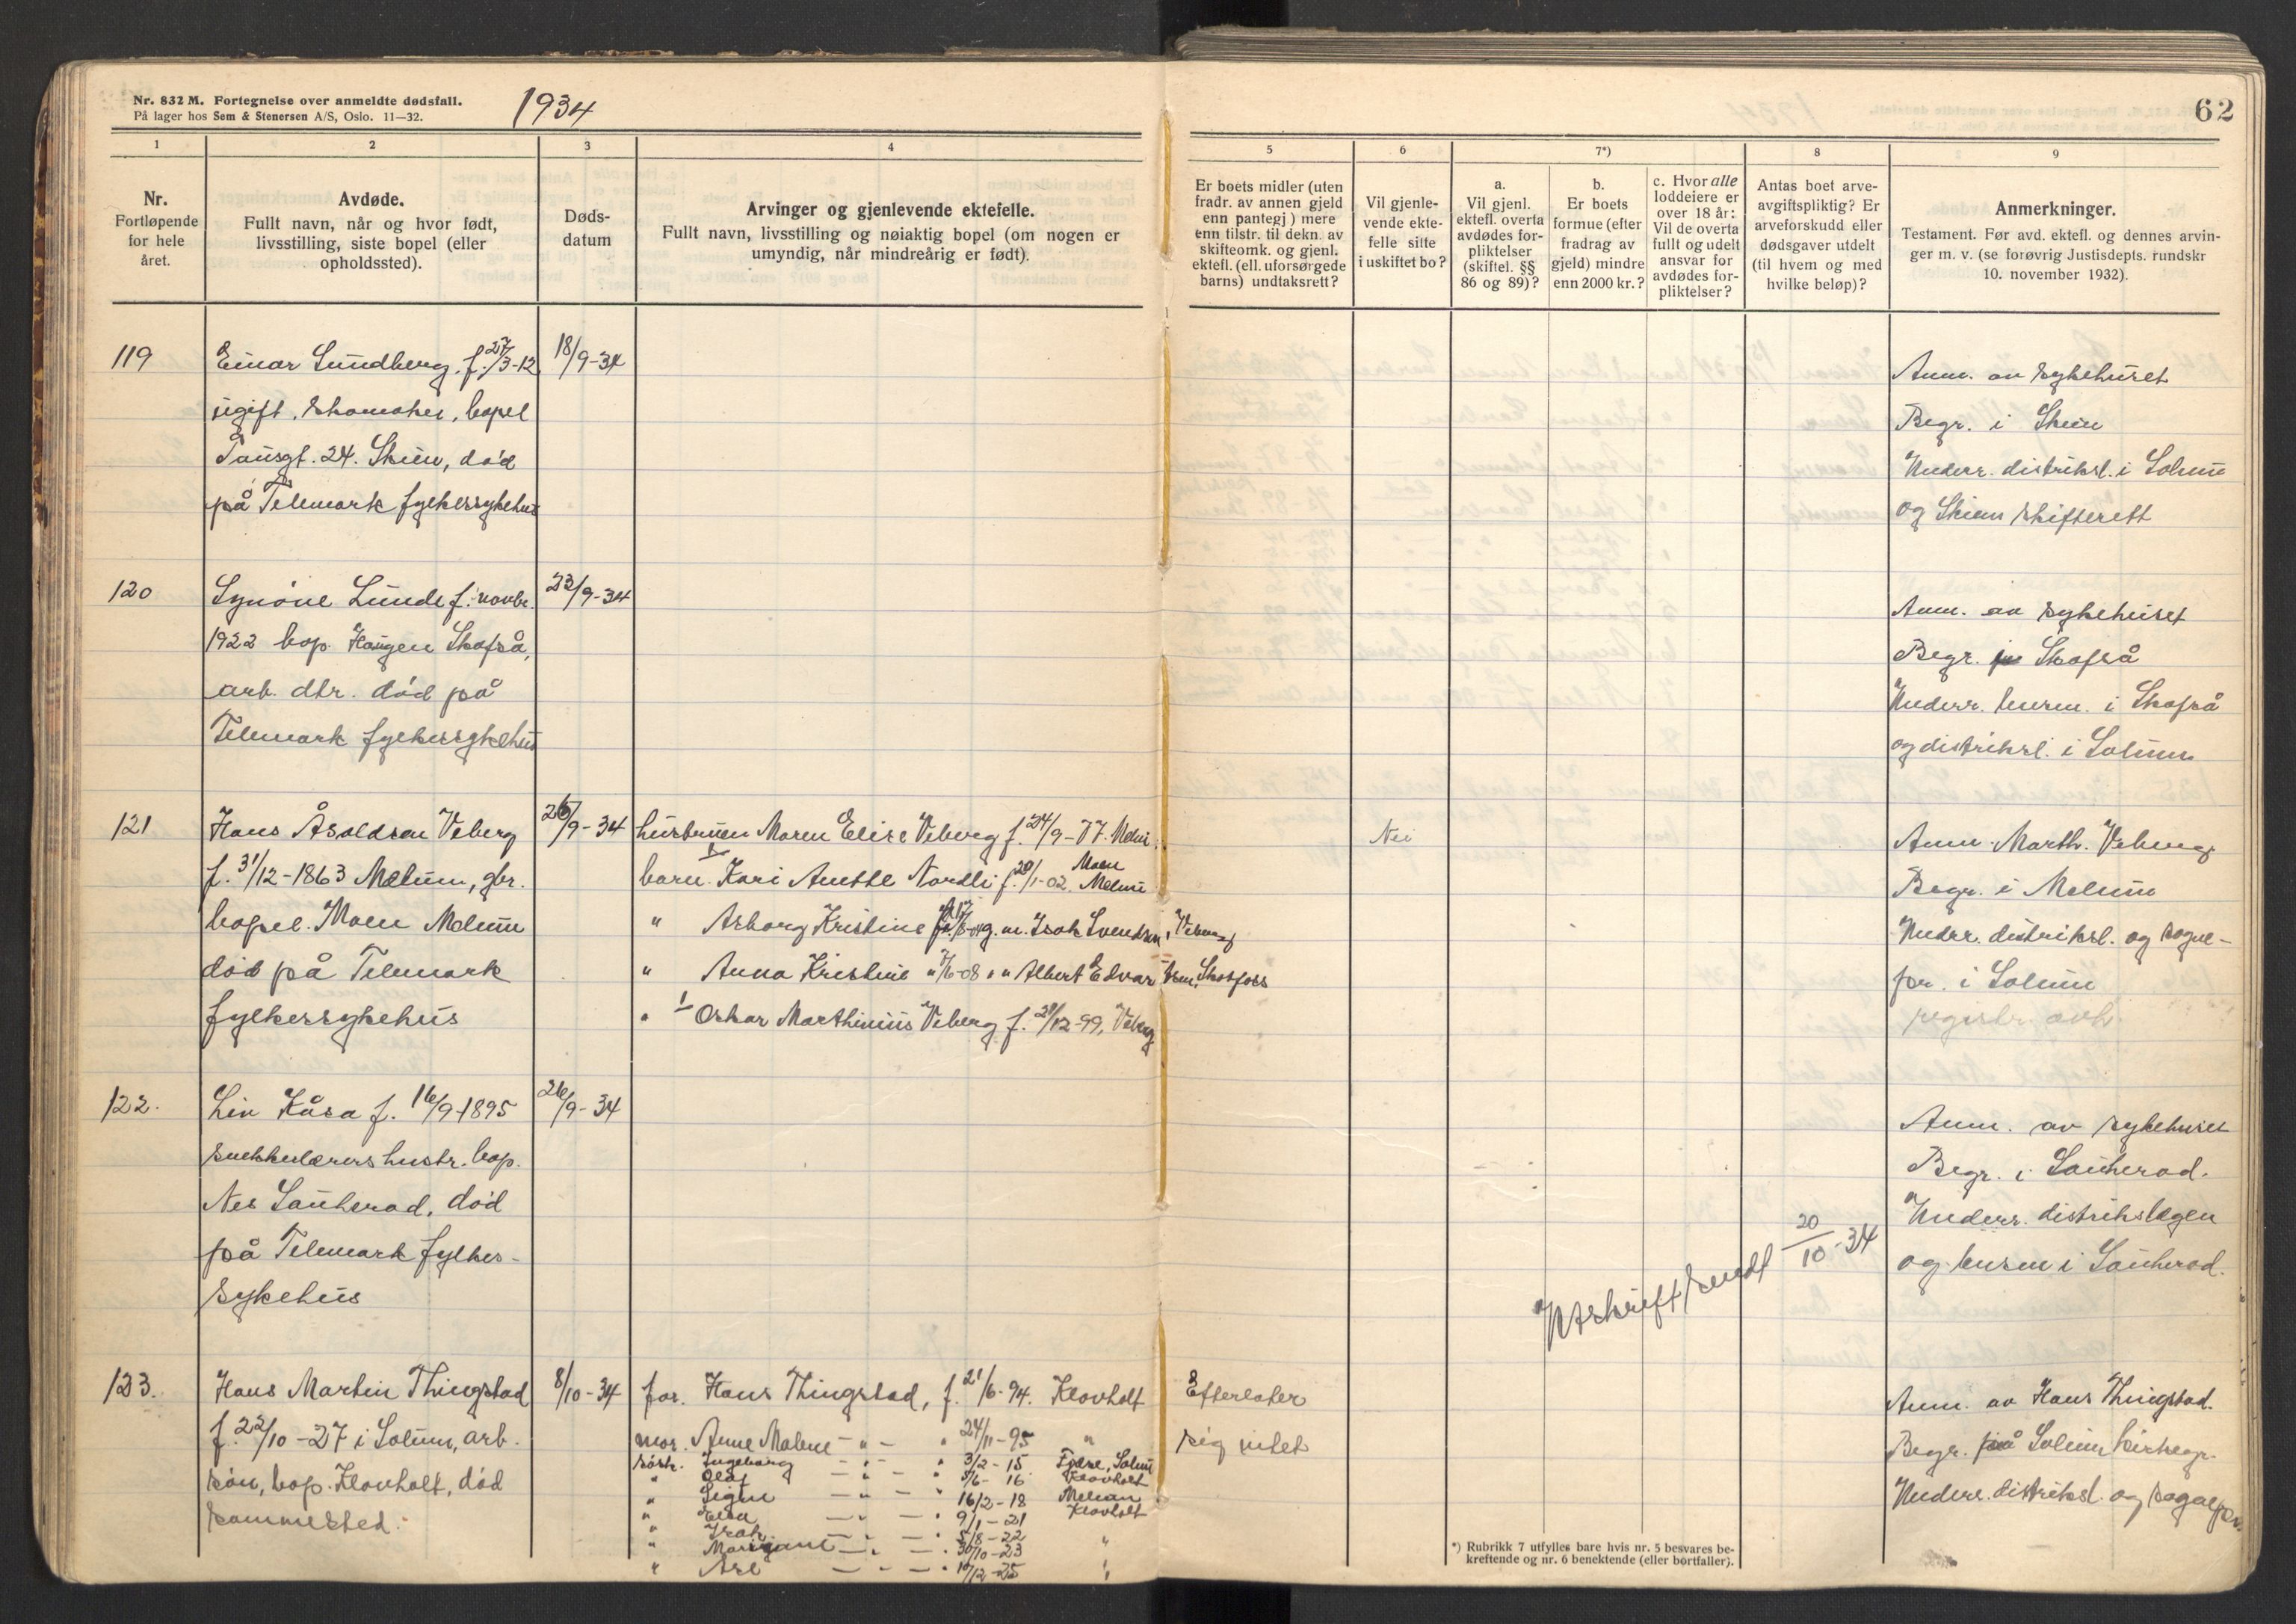 Nr. 832 M. Fortegnelse over anmeldte dødsfall.
På lager hos Sem & Stenersen A/S, Oslo. 11—32.
1934
62
1
2
3
4
5
6
7*)
8
9
Nr.
Fortløpende
for hele
året.
Avdøde.
Fullt navn, når og hvor født,
livsstilling, siste bopel (eller
opholdssted).
Døds-
datum
Arvinger og gjenlevende ektefelle.
Fullt navn, livsstilling og nøiaktig bopel (om nogen er
umyndig, når mindreårig er født).
Er boets midler (uten
fradr. av annen gjeld
enn pantegj) mere
enn tilstr. til dekn. av
skifteomk. og gjenl.
ektefl. (ell. uforsørgede
barns) undtaksrett?
Vil gjenle-
vende ekte-
felle sitte
i uskiftet bo?
a.
Vil gjenl.
ektefl. overta
avdødes for-
pliktelser
(skiftel. §§
86 og 89)?
b.
Er boets
formue (efter
fradrag av
gjeld) mindre
enn 2000 kr.?
c. Hvor alle
loddeiere er
over 18 år:
Vil de overta
fullt og udelt
ansvar for
avdødes for-
pliktelser?
Antas boet arve-
avgiftspliktig? Er
arveforskudd eller
dødsgaver utdelt
(til hvem og med
hvilke beløp)?
Anmerkninger.
Testament. Før avd. ektefl. og dennes arvin-
ger m. v. (se forøvrig Justisdepts. rundskr
10. november 1932).
119
Einar Sundberg, f. 27/3-12
ugift, skomaker, bopel
24. Skien, død
på Telemark fylkessykehus
18/9-34
Anm. av sykehuset
Begr. i Skien
Underr. distriksl. i Solum
og Skien skifterett
120
Synøve Lunde f. novbr.
1922 bop. Haugen Skafså,
arb. dtr. død på
Telemark fylkessykehus
23/9-34
Anm. av sykehuset
Begr. Skafså
Underr. lensm. i Skafså
og distriksl. i Solum
121
Hans Åsoldsen Viberg
f. 31/12-1863 Melum, gbr.
bopel. Moen Melum
død på Telemark
fylkessykehus
26/9-34
hustruen Maren Elise Viberg f. 24/9-77. Melum
barn. Kari Anette Nordli f. 20/1-02. Moen Melum
" Asborg Kristine g. m. Isak Svendsen, Viberg
" Anna Kristine " 7/6-08 " " Albert Edvardsen, Skotfoss
" Oskar Marthinius Viberg f. 29/12-99, Viberg
Nei
Anm. Marth. Viberg
Begr. i Melum
Underr. distriksl. og sogne-
pr. i Solum
registr. avh.
122.
Liv Kåsa f. 16/9-1895
snekkerlærers hustr. bop.
Nes Sauherad, død
på Telemark fylkes-
sykehus
26/9-34
Utskrift sendt 20/10-34
Anm. av sykehuset
Begr. i Sauherad.
Underr. distrikslegen
og lensm i Sauherad.
123.
Hans Martin Thingstad
f. 22/10-27 i Solum, arb.
søn, bop. Klovholt, død
sammested.
8/10-34
far. Hans Thingstad, f. 21/6-94. Klovholt
mor. Anne Malene - " - " 24/11-95 "
søstr. Ingeborg - " - " 3/2-15 Fjære, Solum
" Olaf - " - " 5/6-16 Klovholt
" Signe - " - " 16/2-18 Melum
" Elsa - " - " 9/1-21 Klovholt
" Isak - " - " 5/8-22
" - " - " 30/10-23 "
" - " - " 10/12-25 "
Efterlater
sig intet
Anm. av Hans Thingstad.
Begr. på Solum kirkegr.
Underr. distriksl. og sognepr.
*) Rubrikk 7 utfylles bare hvis nr. 5 besvares be-
kreftende og nr. 6 benektende (eller bortfaller).